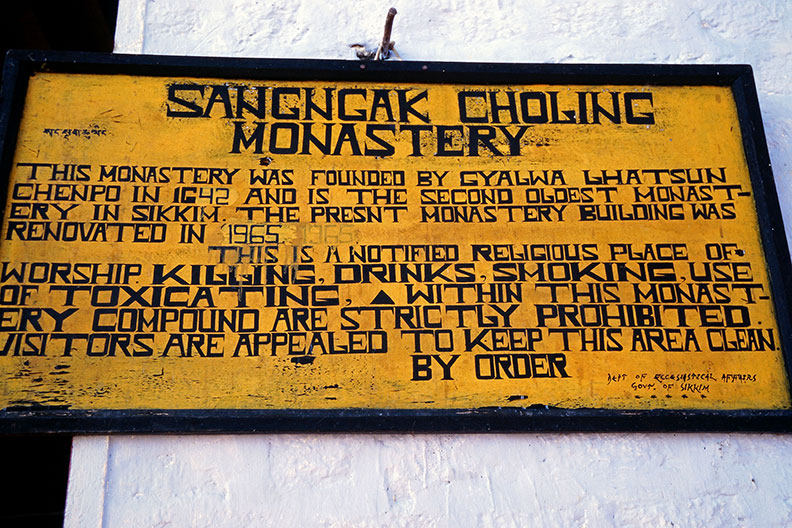 SANGNGAK CHOLING
MONASTERY
THIS MONASTERY WAS FOUNDED BY GYALWA LHATSUN
CHENPO IN 1642 AND IS THE SECOND OLDEST MONAST-
ERY IN SIKKIM. THE PRESNT MONASTERY BUILDING WAS
RENOVATED IN 1965
THIS IS A NOTIFIED RELIGIOUS PLACE OF
WORSHIP. KILLING, DRINKS, SMOKING, USE
OF TOXICATING, WITHIN THIS MONAST-
ERY COMPOUND ARE STRICTLY PROHIBITED.
VISITORS ARE APPEALED TO KEEP THIS AREA CLEAN.
BY ORDER
DEPT OF ECCLESIASTICAL AFFAIRS
GOVT. OF SIKKIM